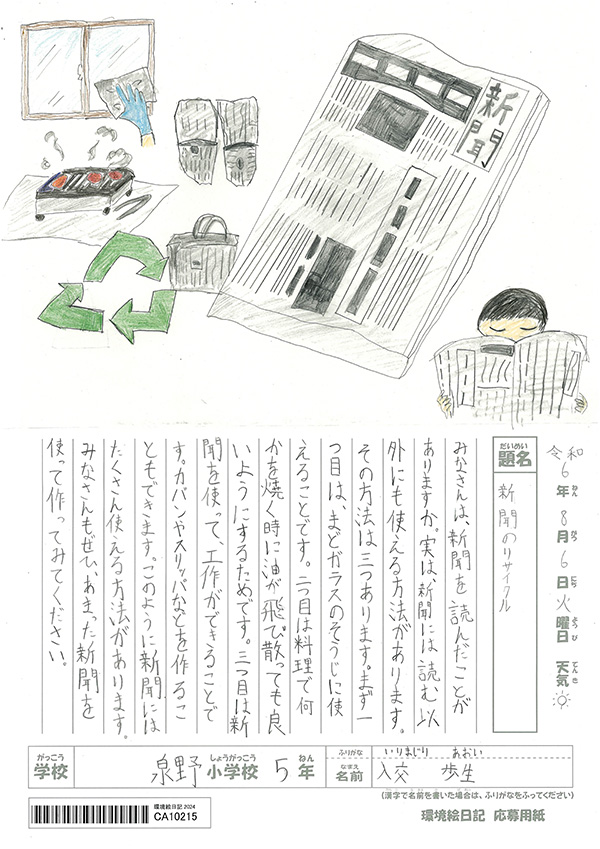 新聞
令和6年ねん8月がつ6日にち火曜日ようび天気てんき
題名だいめい
新聞のリサイクル
みなさんは、新聞を読んだことが
ありますか。実は、新聞には読む以
外にも使える方法があります。
その方法は三つあります。まず一
つ目は、まどガラスのそうじに使
えることです。二つ目は料理で何
かを焼く時に油が飛び散っても良
いようにするためです。三つ目は新
聞を使って、工作ができることで
す。カバンやスリッパなどを作るこ
ともできます。このように新聞には
たくさん使える方法があります。
みなさんもぜひ、あまった新聞を
使って作ってみてください。
がっこう
学校
しょうがっこう ねん
泉野小学校5年
ふりがな いりまじり あおい
なまえ
名前 入交 歩生
(漢字で名前を書いた場合は、ふりがなをふってください)
環境絵日記 2024
CA10215
環境絵日記 応募用紙